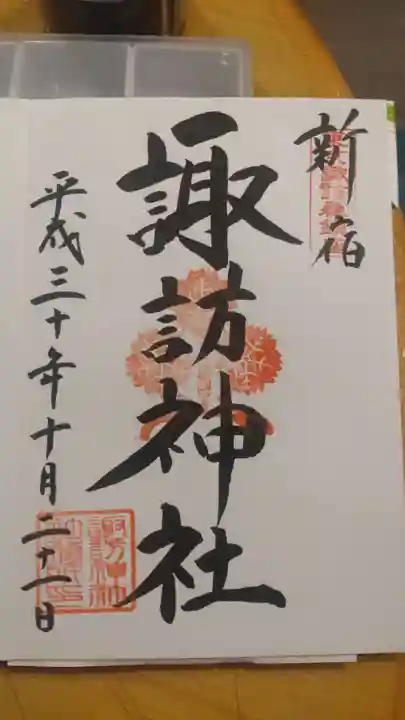 新宿
諏訪神社
平成三十年十月二十一日